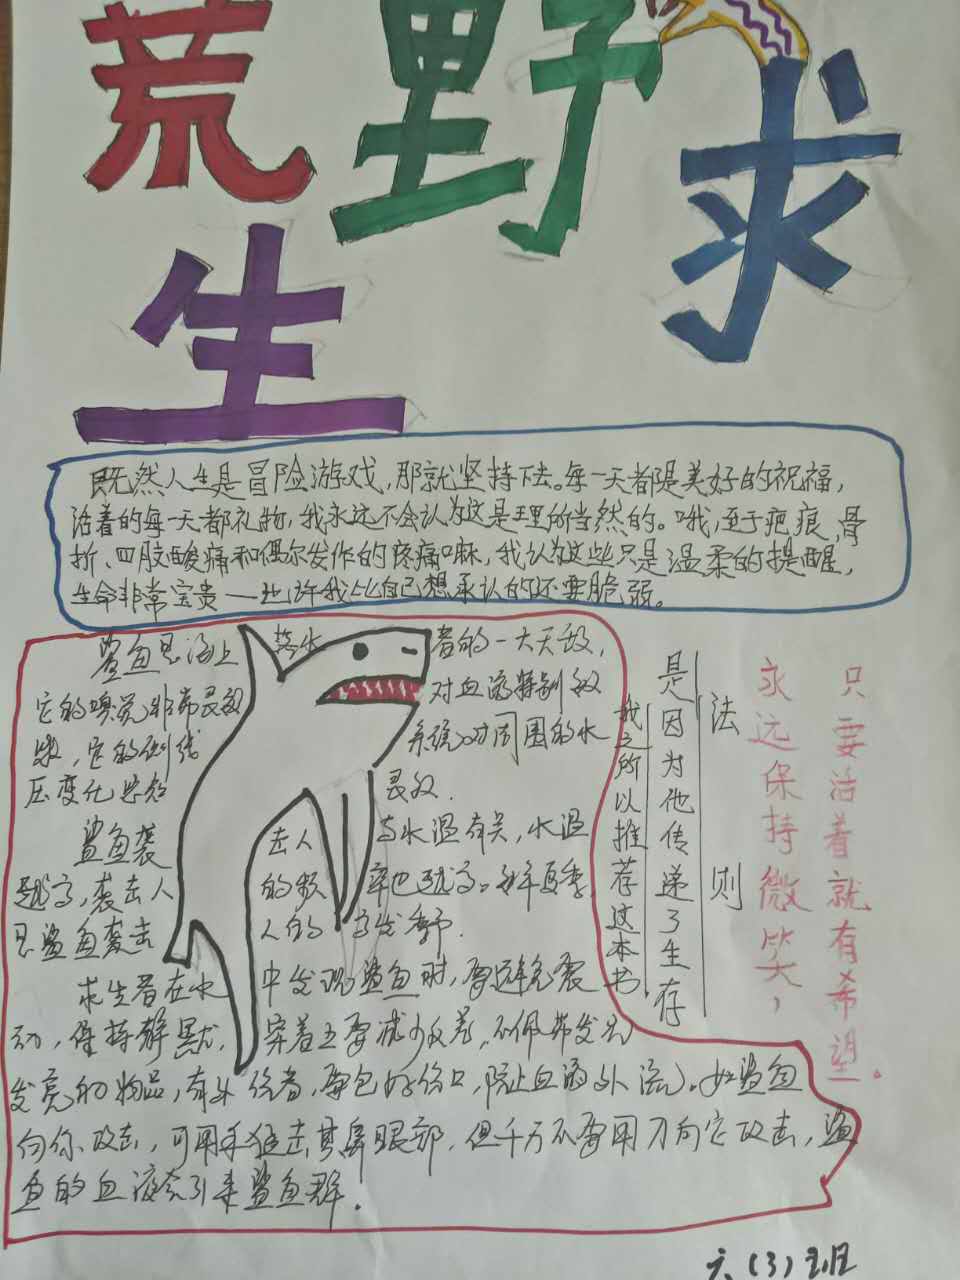 荒野求
生
既然人生是冒险游戏，那就坚持下去。每一天都是美好的祝福，
活着的每一天都礼物，我永远不会认为这是理所当然的。哦，至于疤痕、骨
折、四肢酸痛和偶尔发作的疼痛嘛，我认为这些只是温柔的提醒，
生命非常宝贵——也许我比自己想承认的还要脆弱。
鲨鱼是海上 落水 者的一大天敌，
它的嗅觉非常灵敏 对血液特别敏
压变化感知 灵敏.
鲨鱼袭 击人 与水温有关，水温
越高，袭击人 的频 率也越高。每年夏季，
是鲨鱼袭击 人的 高发季.
求生者在水 中发现鲨鱼时，要避免震
动，保持静默， 穿着上要减少反差，不佩带发光
发亮的物品，有外伤者，要包好伤口，防止血液外流。如鲨鱼
向你攻击，可用手狙击其鼻眼部，但千万不要用刀向它攻击，鲨
鱼的血液会引来鲨鱼群.
我之所以推荐这本书，
是因为他传递了生存
法则
永远保持微笑，
只要活着就有希望。
六（3）班